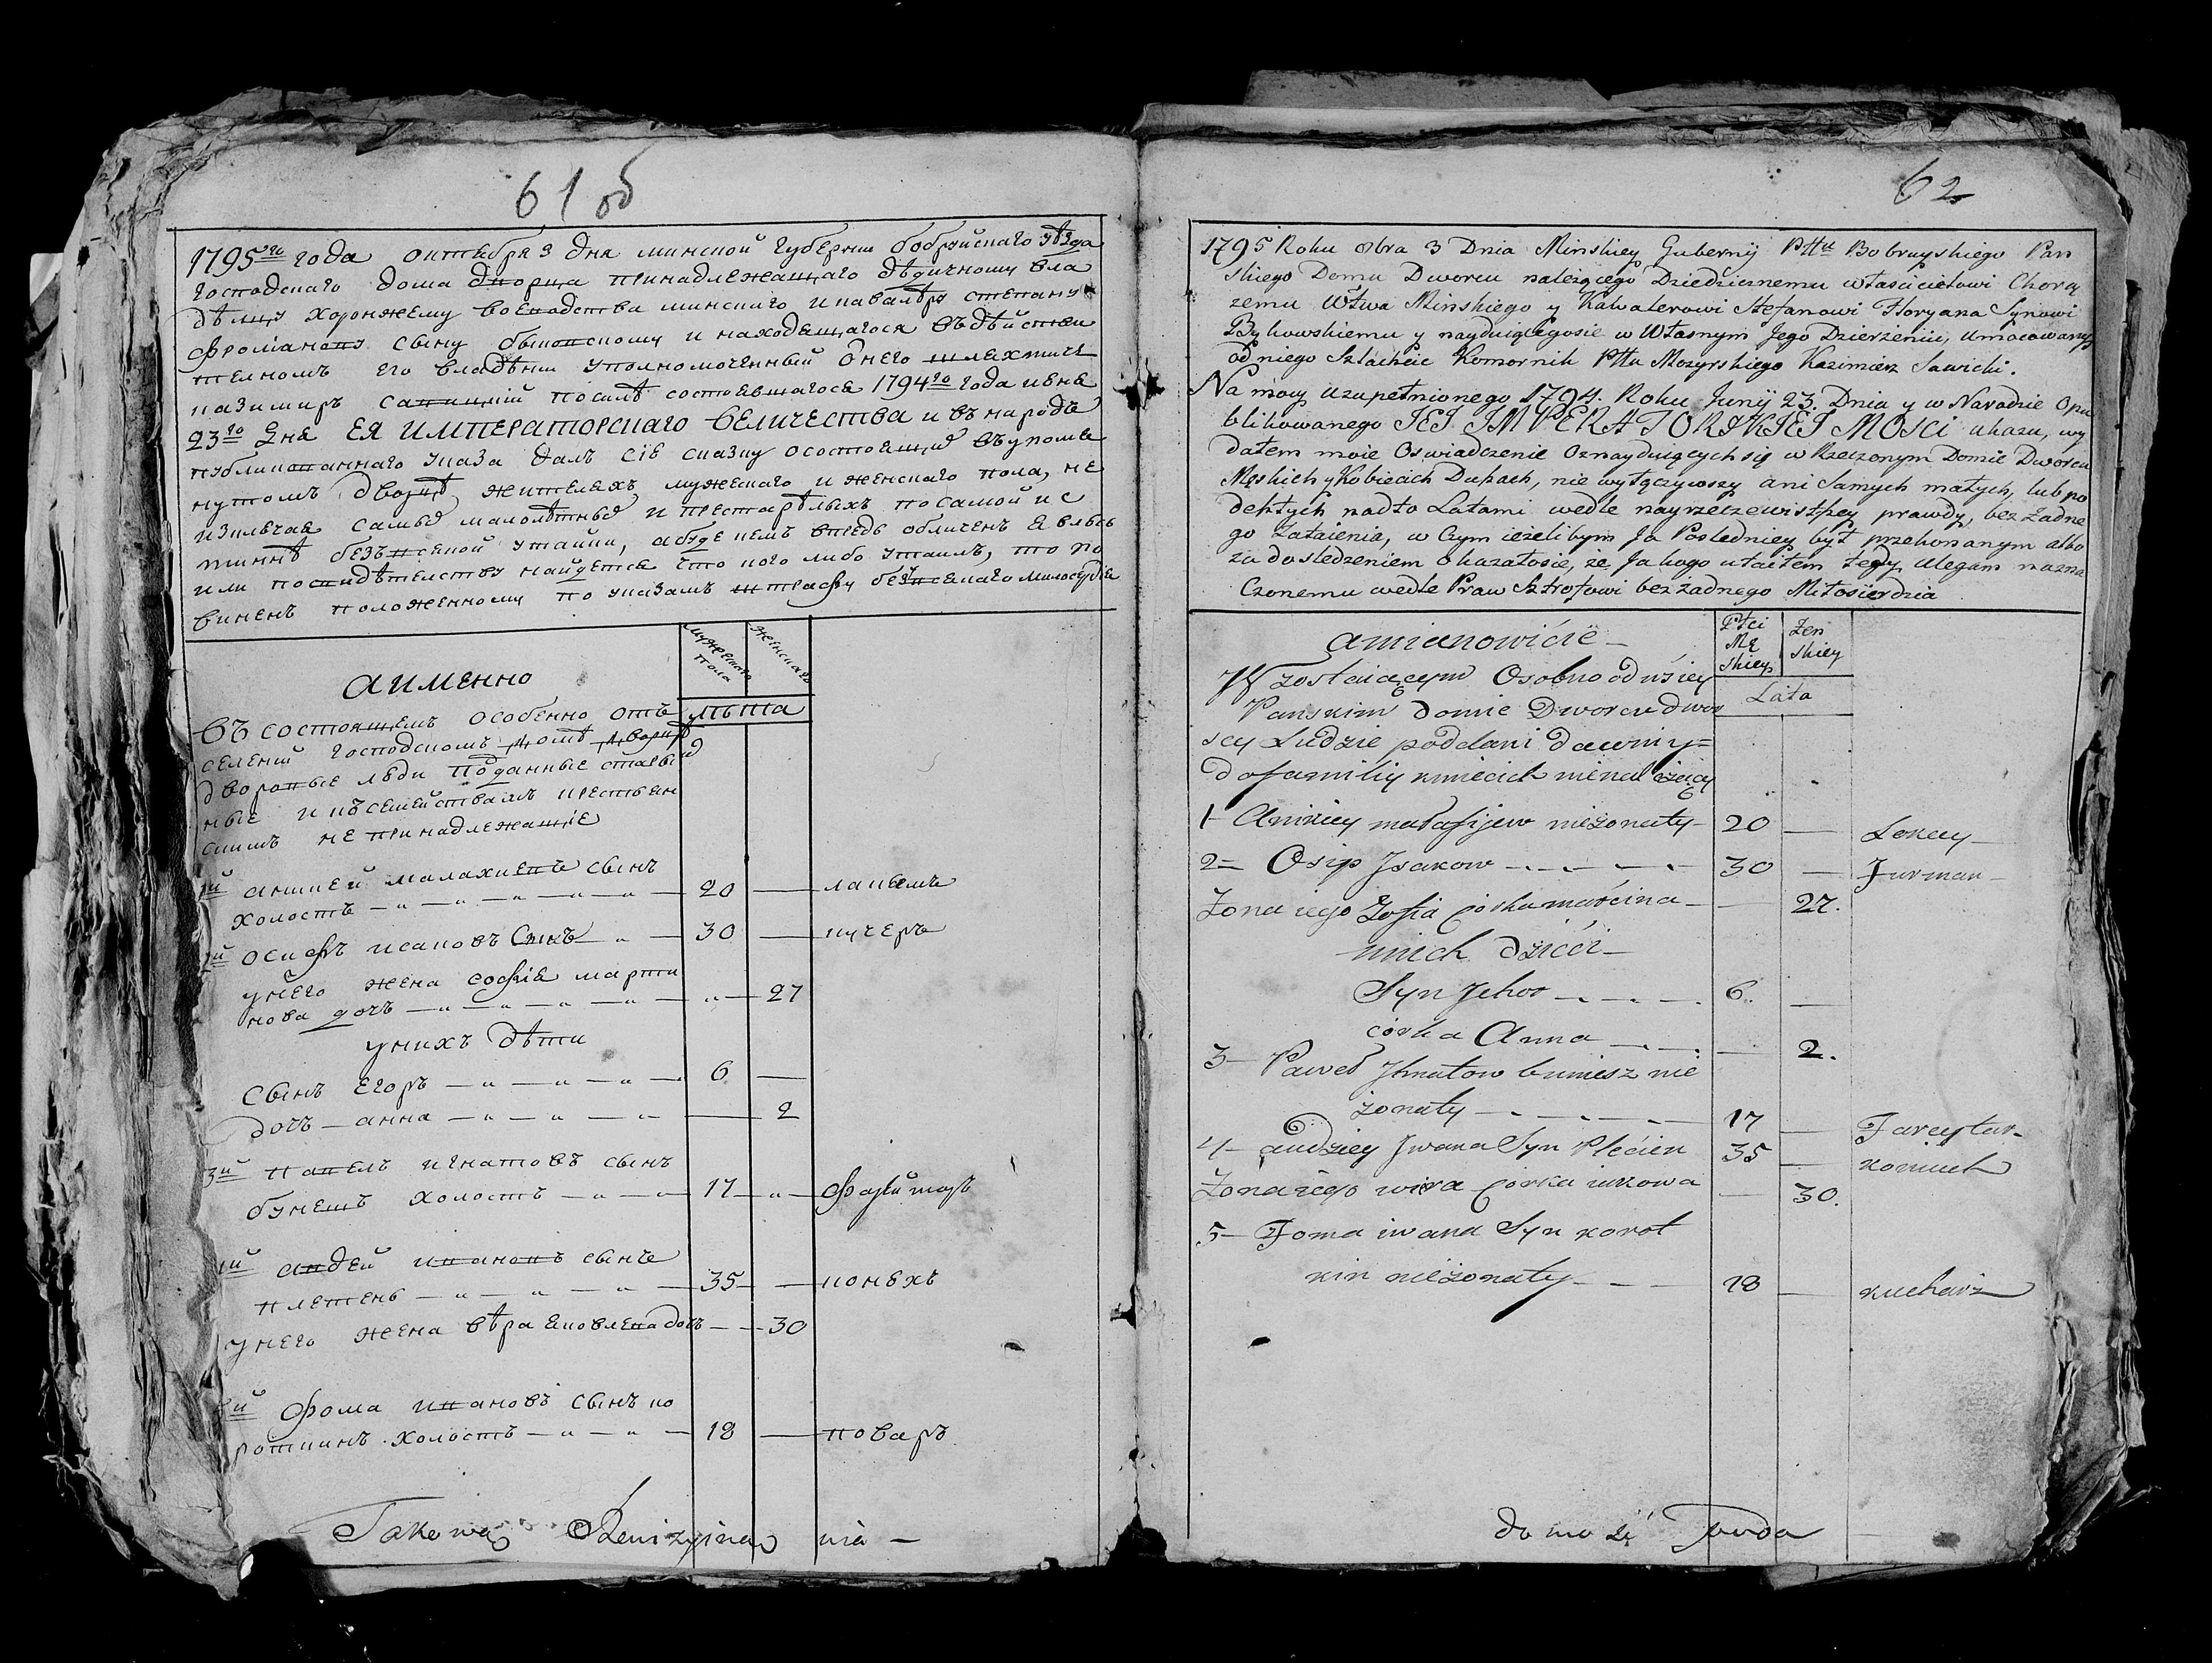 61 об
1795го года октября 3 дня минской губернии бобруйского уѣзда
господского дома дворца принадлежащаго дѣдичному вла
дѣлцу хоронжему воеводства минского и кавалѣру степану
флориянову сыну быковскому и находящагося въ дѣйстви
телномъ его владѣнии уполномоченный Отнего шляхтичъ
казимиръ савицкий посилѣ состоявшагося 1794го года июня
23го Дня ЕЯ ИМПЕРАТОРСКАГО ВЕЛИЧЕСТВА и въ народѣ
публикованнаго указа далъ сіе сказку о состоящихъ въ упомя
нутомъ дворцѣ жителяхъ мужескаго и женскаго пола, не
изключая самые малолѣтные и престарѣлыхъ по самой ис
тиннѣ безъ всякой утайки, а буде в чемъ впредь обличенъ я явлюсь
или по свидѣтелству найдется что кого либо утаилъ, то по
виненъ положенному по указамъ штрафу безъ всякаго милосердія
а именно
мужескаго
пола
женскаго
лѣта
Въ состоящемъ особенно отъ
селений господскомъ домѣ дворцѣ
дворовые люди подданные старын
ные и къ семействамъ крестьян
скимъ не принадлежащіе
1й аникей малахиевъ сынъ
холостъ 20 лакеемъ
2й осифъ исаковъ сынъ 30 кучеръ
у него жена софія марти
нова дочъ 27
у нихъ дѣти
сынъ егоръ 6
дочъ анна 2
3й павелъ игнатовъ сынъ
бунешъ холостъ 17 форейторъ
4й андрей ивановъ сынъ
плетень 35 конюхъ
у него жена вѣра яковлева дочъ 30
5й фома ивановъ сынъ ко
роткинъ холостъ 18 поваръ
Takową Rewizyina nia
62
1795 Roku 8bra 3 Dnia Minskiey Gubernij Pttu Bobruyskiego Pan
skiego Domu Dworcu należącego Dziedzicznemu własicielowi Chorą
zemu Wttwa Minskiego y Kawalerowi Stefanowi Floryana Synowi
Bykowskiemu y nayduiącegosie w Własnym Jego Dzierżeniu, Umocowany
od niego Szlachcic Komornik Pttu Mozyrskiego Kazimierz Sawicki.
Na mocy uzupełnionego 1794. Roku Junij 23. Dnia y w Narodzie Opu
blikowanego JEJ IMPERATORSKIEJ MOSCI ukazu, wy
dałem moie Oswiadczenie Oznayduiących się w Rzeczonym Domie Dworcu
Męskich y Kobiecich Duhach, nie wyłączywszy ani Samych małych, lub po
deszłych nadto Latami wedle nayrzeczewistszey prawdy, bez Zadne
go Zataienia, w Czym ieżelibym Ja Posledniey był przekonanym albo
za dosledzeniem Okazałosie, że Ja kogo utaiłem tedy Ulegam nazna
Czonemu wedle Praw Sztrofowi bez żadnego Miłosierdzia
amianowićie
Płci
Mę
skiey
Zen
skiey
Lata
W zostaiącym Osobno od wsiey
Panskim domie Dworcu dwor
scy Ludzie poddani dawni y
do familiy kmiecich nienależący
1 Anikiey małafijew nieżonaty 20 Lokay
2 Osip Jsakow 30 Furman
Zona iego Zofia corka marćina 27.
unich dzieći
Syn Jehor 6.
córka Anna 2.
3 Paweł Jhnatow buniesz nie
żonaty 17 Foreytar
4 andziey Jwana Syn Plećien 35 koniuch
Zona iego wiera Corka iakowa 30.
5 Foma iwana Syn korot
kin nieżonaty 18 kucharz